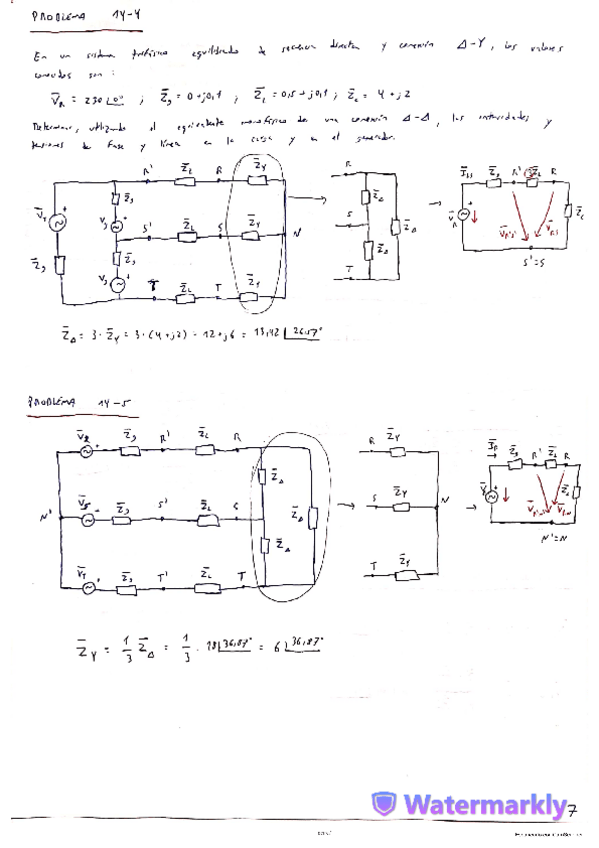 PROBLEMA 14-4
En un sistema trifásico equilibrado de secuencia directa y conexión Δ-Y, los valores
conocidos son:
V̅R = 230∠0° ; Z̅g = 0+j0,1 ; Z̅L = 0,5+j0,1 ; Z̅c = 4+j2
Determinar, utilizando el equivalente monofásico de una conexión Δ-Δ, las intensidades y
tensiones de fase y línea en la carga y en el generador.
R' Z̅L R Z̅Y
Z̅g
V̅g
S' Z̅L S Z̅Y N
Z̅g
Z̅g
Vg
T Z̅L T Z̅Y
R
Z̅Δ
S Z̅Δ
Z̅Δ
T
Z̅g R' 3Z̅L R
V̅R
Z̅c
S'=S
Z̅Δ = 3·Z̅Y = 3·(4+j2) = 12+j6 = 13,42∠26,57°
PROBLEMA 14-5
V̅R Z̅g R' Z̅L R
Z̅Δ
N' V̅S Z̅g S' Z̅L S
Z̅Δ
Z̅Δ
V̅T Z̅g T' Z̅L T
R Z̅Y
S Z̅Y N
T Z̅Y
Z̅g R' Z̅L R
N'=N
Z̅Y = 1/3 Z̅Δ = 1/3 · 18∠36,87° = 6∠36,87°
Watermarkly
7